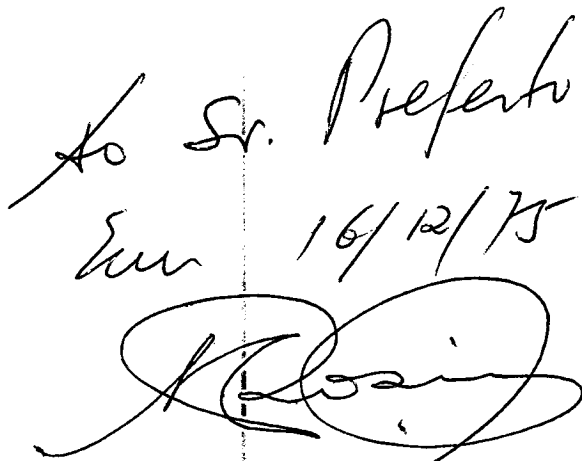 Ao Sr. Prefeito
Em 16/12/75